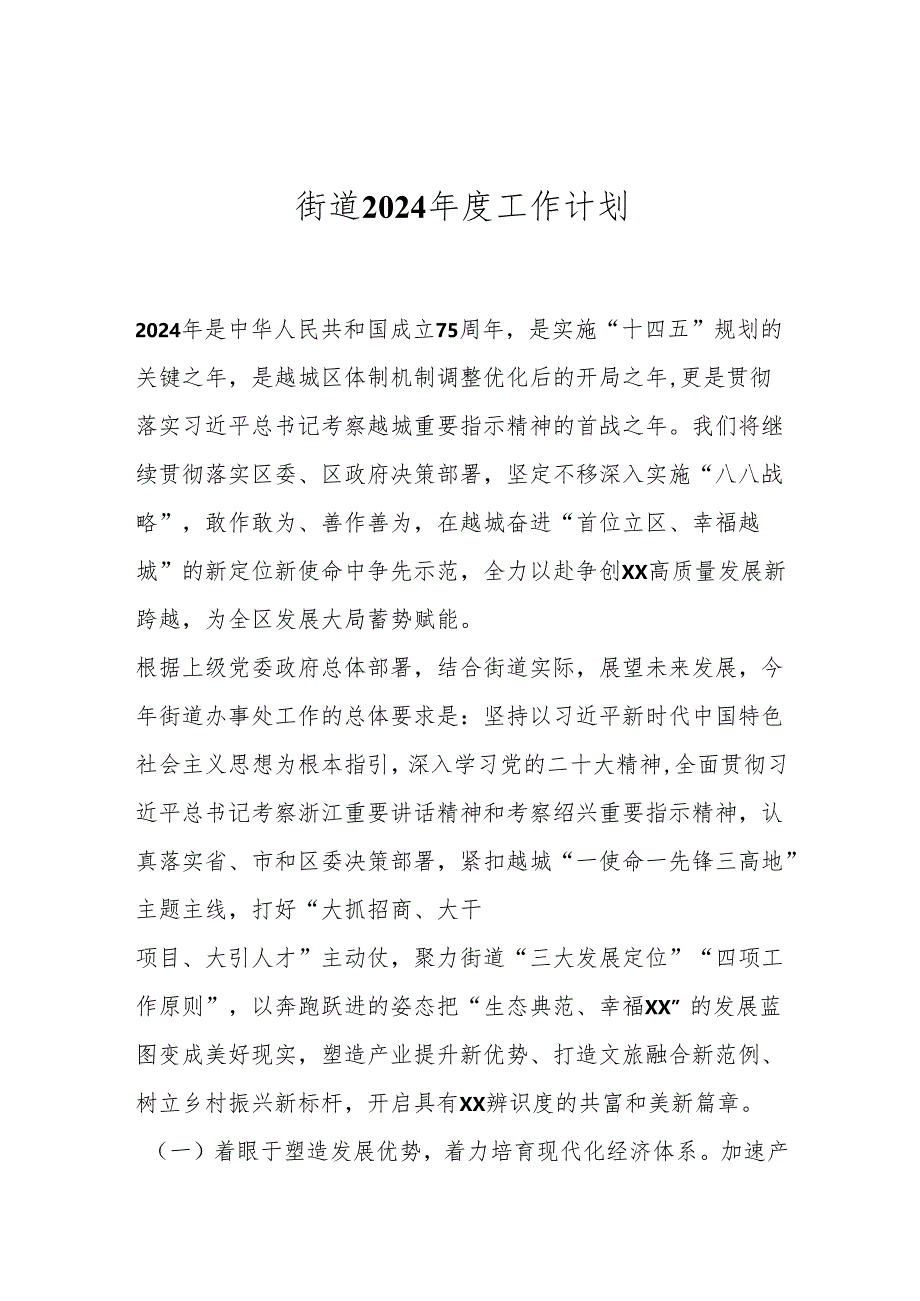 街道2024年度工作计划
2024年是中华人民共和国成立75周年，是实施“十四五”规划的
关键之年，是越城区体制机制调整优化后的开局之年,更是贯彻
落实习近平总书记考察越城重要指示精神的首战之年。我们将继
续贯彻落实区委、区政府决策部署，坚定不移深入实施“八八战
略”，敢作敢为、善作善为，在越城奋进“首位立区、幸福越
城”的新定位新使命中争先示范，全力以赴争创XX高质量发展新
跨越，为全区发展大局蓄势赋能。
根据上级党委政府总体部署，结合街道实际，展望未来发展，今
年街道办事处工作的总体要求是：坚持以习近平新时代中国特色
社会主义思想为根本指引,深入学习党的二十大精神,全面贯彻习
近平总书记考察浙江重要讲话精神和考察绍兴重要指示精神，认
真落实省、市和区委决策部署，紧扣越城“一使命一先锋三高地”
主题主线，打好“大抓招商、大干
项目、大引人才”主动仗，聚力街道“三大发展定位”“四项工
作原则”，以奔跑跃进的姿态把“生态典范、幸福XX”的发展蓝
图变成美好现实，塑造产业提升新优势、打造文旅融合新范例、
树立乡村振兴新标杆，开启具有XX辨识度的共富和美新篇章。
（一）着眼于塑造发展优势，着力培育现代化经济体系。加速产